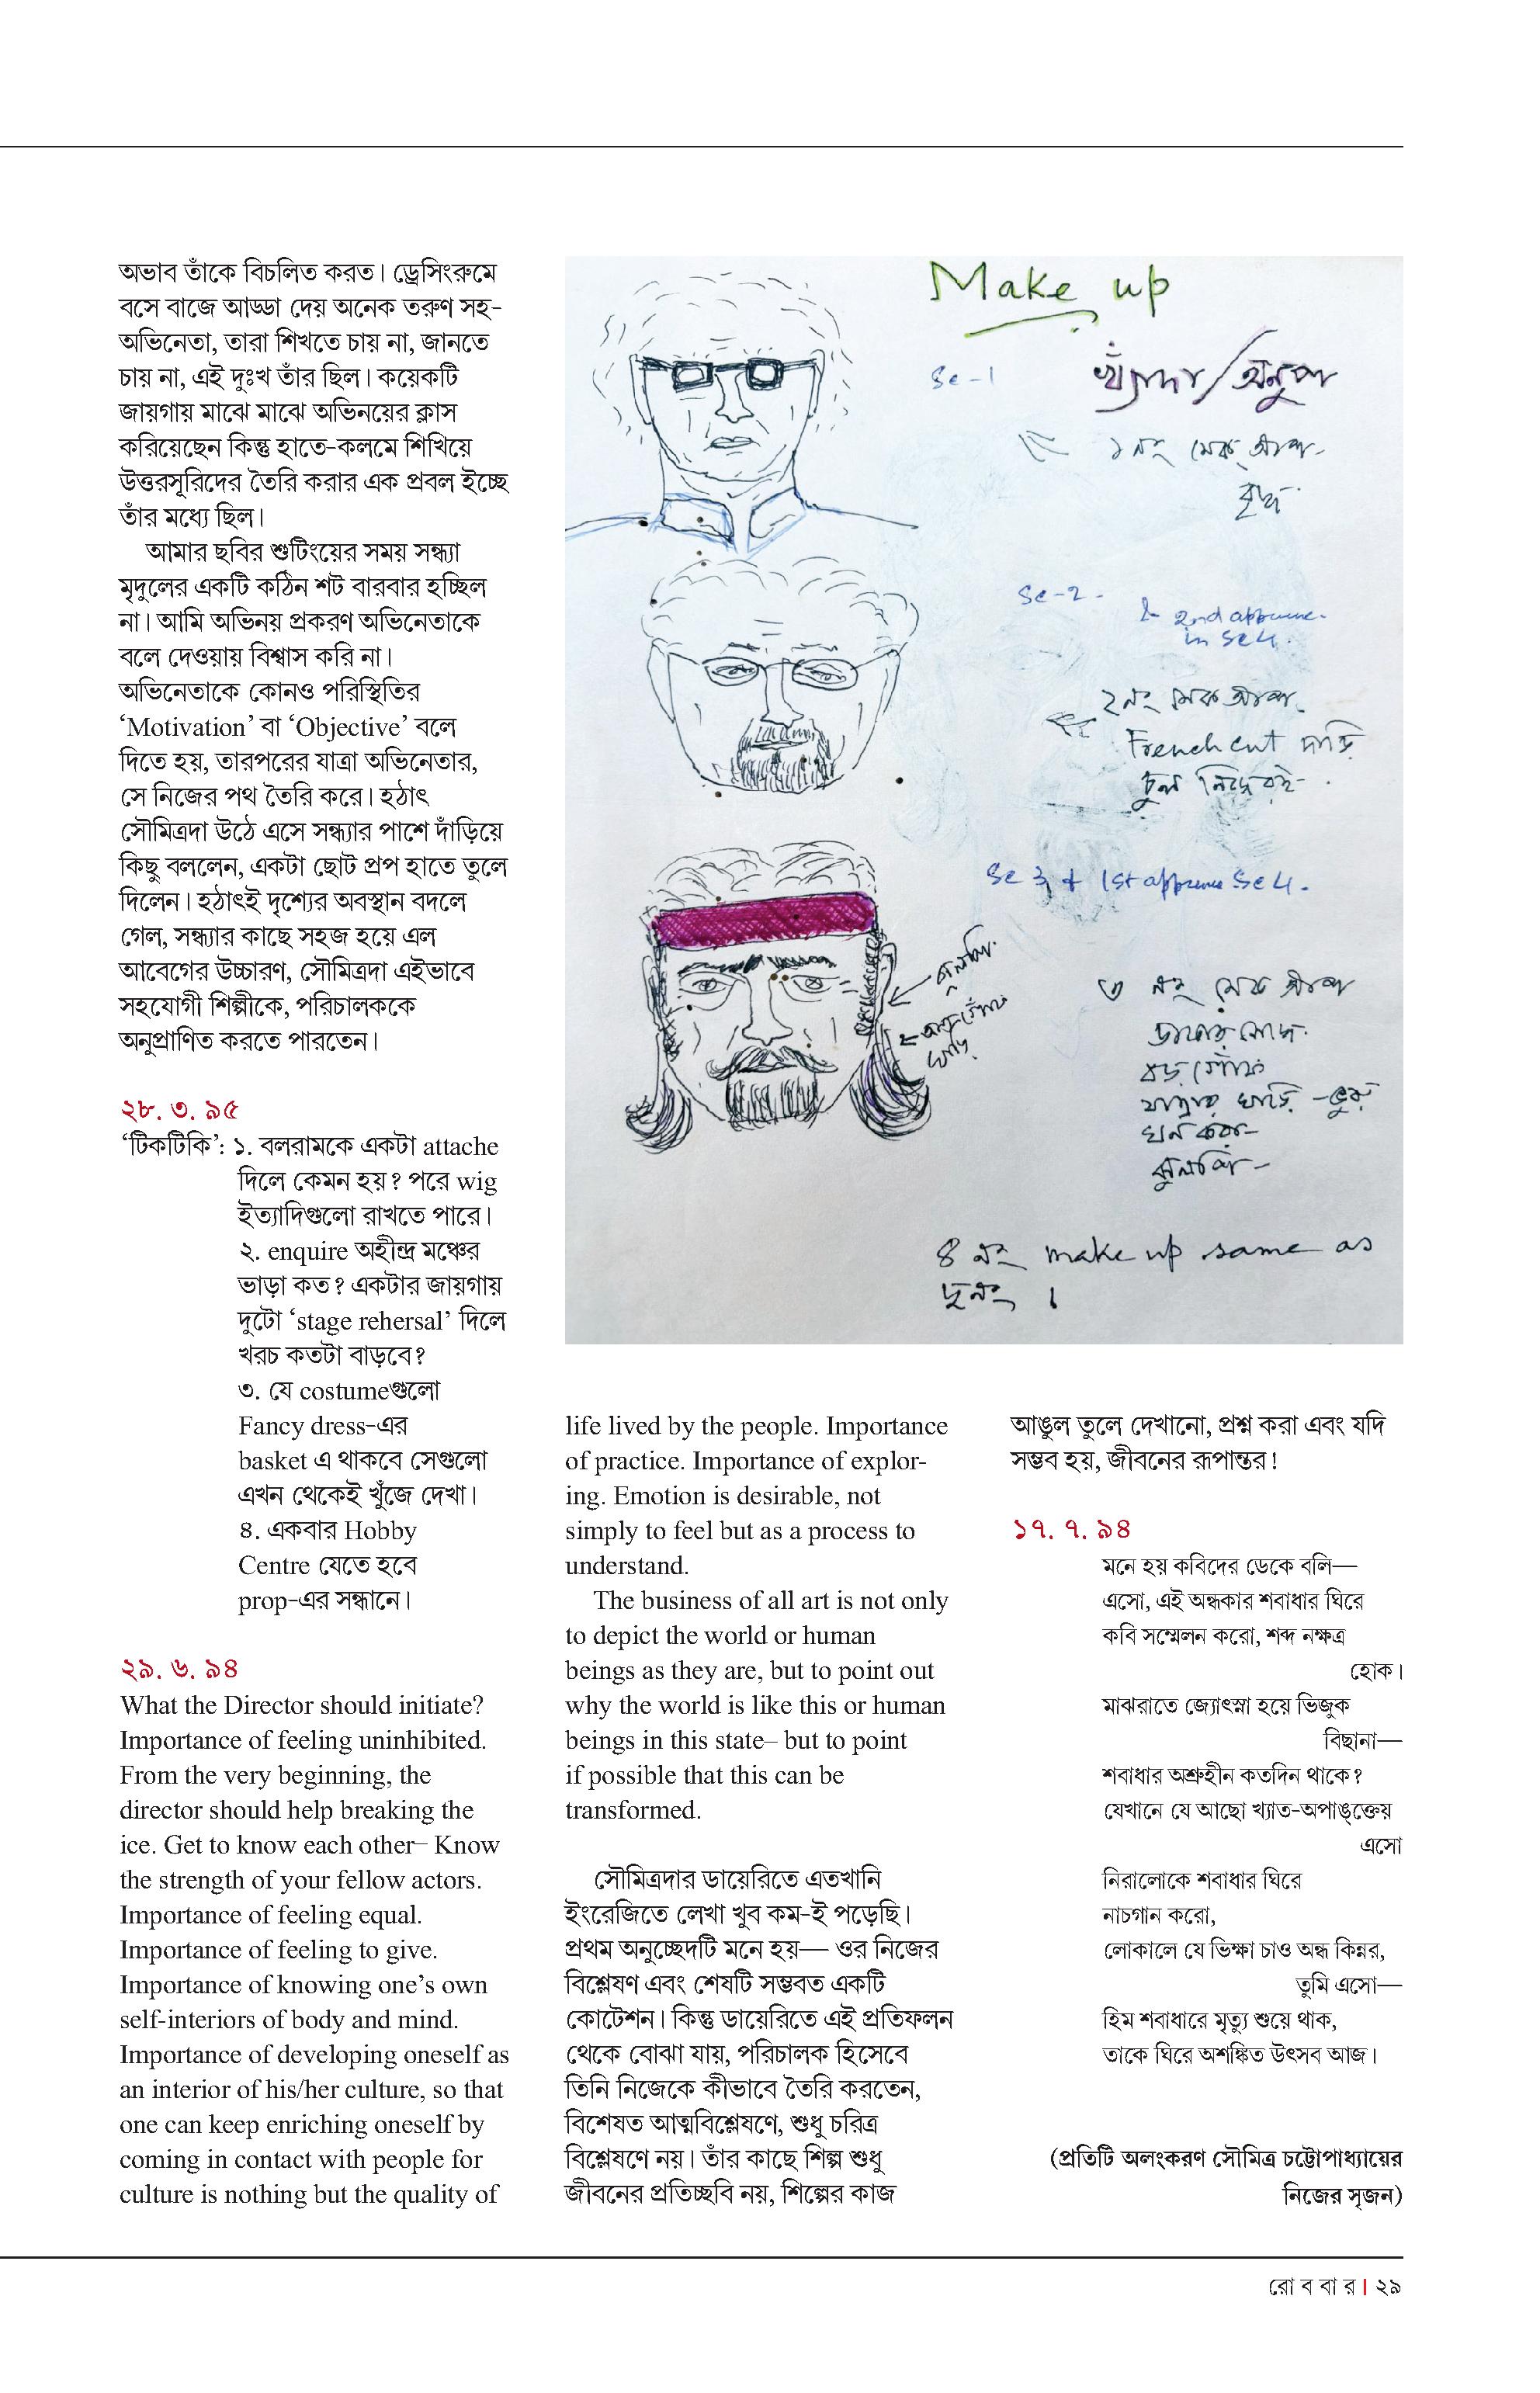 অভাব তাঁকে বিচলিত করত। ড্রেসিংরুমে
বসে বাজে আড্ডা দেয় অনেক তরুণ সহ-
অভিনেতা, তারা শিখতে চায় না, জানতে
চায় না, এই দুঃখ তাঁর ছিল। কয়েকটি
জায়গায় মাঝে মাঝে অভিনয়ের ক্লাস
করিয়েছেন কিন্তু হাতে-কলমে শিখিয়ে
উত্তরসূরিদের তৈরি করার এক প্রবল ইচ্ছে
তাঁর মধ্যে ছিল।
আমার ছবির শুটিংয়ের সময় সন্ধ্যা
মৃদুলের একটি কঠিন শট বারবার হচ্ছিল
না। আমি অভিনয় প্রকরণ অভিনেতাকে
বলে দেওয়ায় বিশ্বাস করি না।
অভিনেতাকে কোনও পরিস্থিতির
‘Motivation’ বা ‘Objective’ বলে
দিতে হয়, তারপরের যাত্রা অভিনেতার,
সে নিজের পথ তৈরি করে। হঠাৎ
সৌমিত্রদা উঠে এসে সন্ধ্যার পাশে দাঁড়িয়ে
কিছু বললেন, একটা ছোট প্রপ হাতে তুলে
দিলেন। হঠাৎই দৃশ্যের অবস্থান বদলে
গেল, সন্ধ্যার কাছে সহজ হয়ে এল
আবেগের উচ্চারণ, সৌমিত্রদা এইভাবে
সহযোগী শিল্পীকে, পরিচালককে
অনুপ্রাণিত করতে পারতেন।
২৮. ৩. ৯৫
‘টিকটিকি’: ১. বলরামকে একটা attache
দিলে কেমন হয়? পরে wig
ইত্যাদিগুলো রাখতে পারে।
২. enquire অহীন্দ্র মঞ্চের
ভাড়া কত? একটার জায়গায়
দুটো ‘stage rehersal’ দিলে
খরচ কতটা বাড়বে?
৩. যে costumeগুলো
Fancy dress-এর
basket এ থাকবে সেগুলো
এখন থেকেই খুঁজে দেখা।
৪. একবার Hobby
Centre যেতে হবে
prop-এর সন্ধানে।
২৯. ৬. ৯৪
What the Director should initiate?
Importance of feeling uninhibited.
From the very beginning, the
director should help breaking the
ice. Get to know each other– Know
the strength of your fellow actors.
Importance of feeling equal.
Importance of feeling to give.
Importance of knowing one’s own
self-interiors of body and mind.
Importance of developing oneself as
an interior of his/her culture, so that
one can keep enriching oneself by
coming in contact with people for
culture is nothing but the quality of
Make up
Sc-1
খ্যাঁদা/অনুপ
১ নং মেক্ আপ-
বৃদ্ধ
Sc-2 -
& 2nd
in Sc 4.
২নং মেকআপ
French cut দাড়ি
চুল নিজেরই-
Sc 3 + 1st Sc 4.
জুলপি
৩ নং মেক আপ
বড় গোঁফ
ঘন করা-
জুলপি-
৪ নং make up same as
দুনং ।
life lived by the people. Importance
of practice. Importance of explor-
ing. Emotion is desirable, not
simply to feel but as a process to
understand.
The business of all art is not only
to depict the world or human
beings as they are, but to point out
why the world is like this or human
beings in this state– but to point
if possible that this can be
transformed.
সৌমিত্রদার ডায়েরিতে এতখানি
ইংরেজিতে লেখা খুব কম-ই পড়েছি।
প্রথম অনুচ্ছেদটি মনে হয়— ওর নিজের
বিশ্লেষণ এবং শেষটি সম্ভবত একটি
কোটেশন। কিন্তু ডায়েরিতে এই প্রতিফলন
থেকে বোঝা যায়, পরিচালক হিসেবে
তিনি নিজেকে কীভাবে তৈরি করতেন,
বিশেষত আত্মবিশ্লেষণে, শুধু চরিত্র
বিশ্লেষণে নয়। তাঁর কাছে শিল্প শুধু
জীবনের প্রতিচ্ছবি নয়, শিল্পের কাজ
আঙুল তুলে দেখানো, প্রশ্ন করা এবং যদি
সম্ভব হয়, জীবনের রূপান্তর!
১৭. ৭. ৯৪
মনে হয় কবিদের ডেকে বলি—
এসো, এই অন্ধকার শবাধার ঘিরে
কবি সম্মেলন করো, শব্দ নক্ষত্র
হোক।
মাঝরাতে জ্যোৎস্না হয়ে ভিজুক
বিছানা—
শবাধার অশ্রুহীন কতদিন থাকে?
যেখানে যে আছো খ্যাত-অপাঙ্‌ক্তেয়
এসো
নিরালোকে শবাধার ঘিরে
নাচগান করো,
লোকালে যে ভিক্ষা চাও অন্ধ কিন্নর,
তুমি এসো—
হিম শবাধারে মৃত্যু শুয়ে থাক,
তাকে ঘিরে অশঙ্কিত উৎসব আজ।
(প্রতিটি অলংকরণ সৌমিত্র চট্টোপাধ্যায়ের
নিজের সৃজন)
রোববার। ২৯